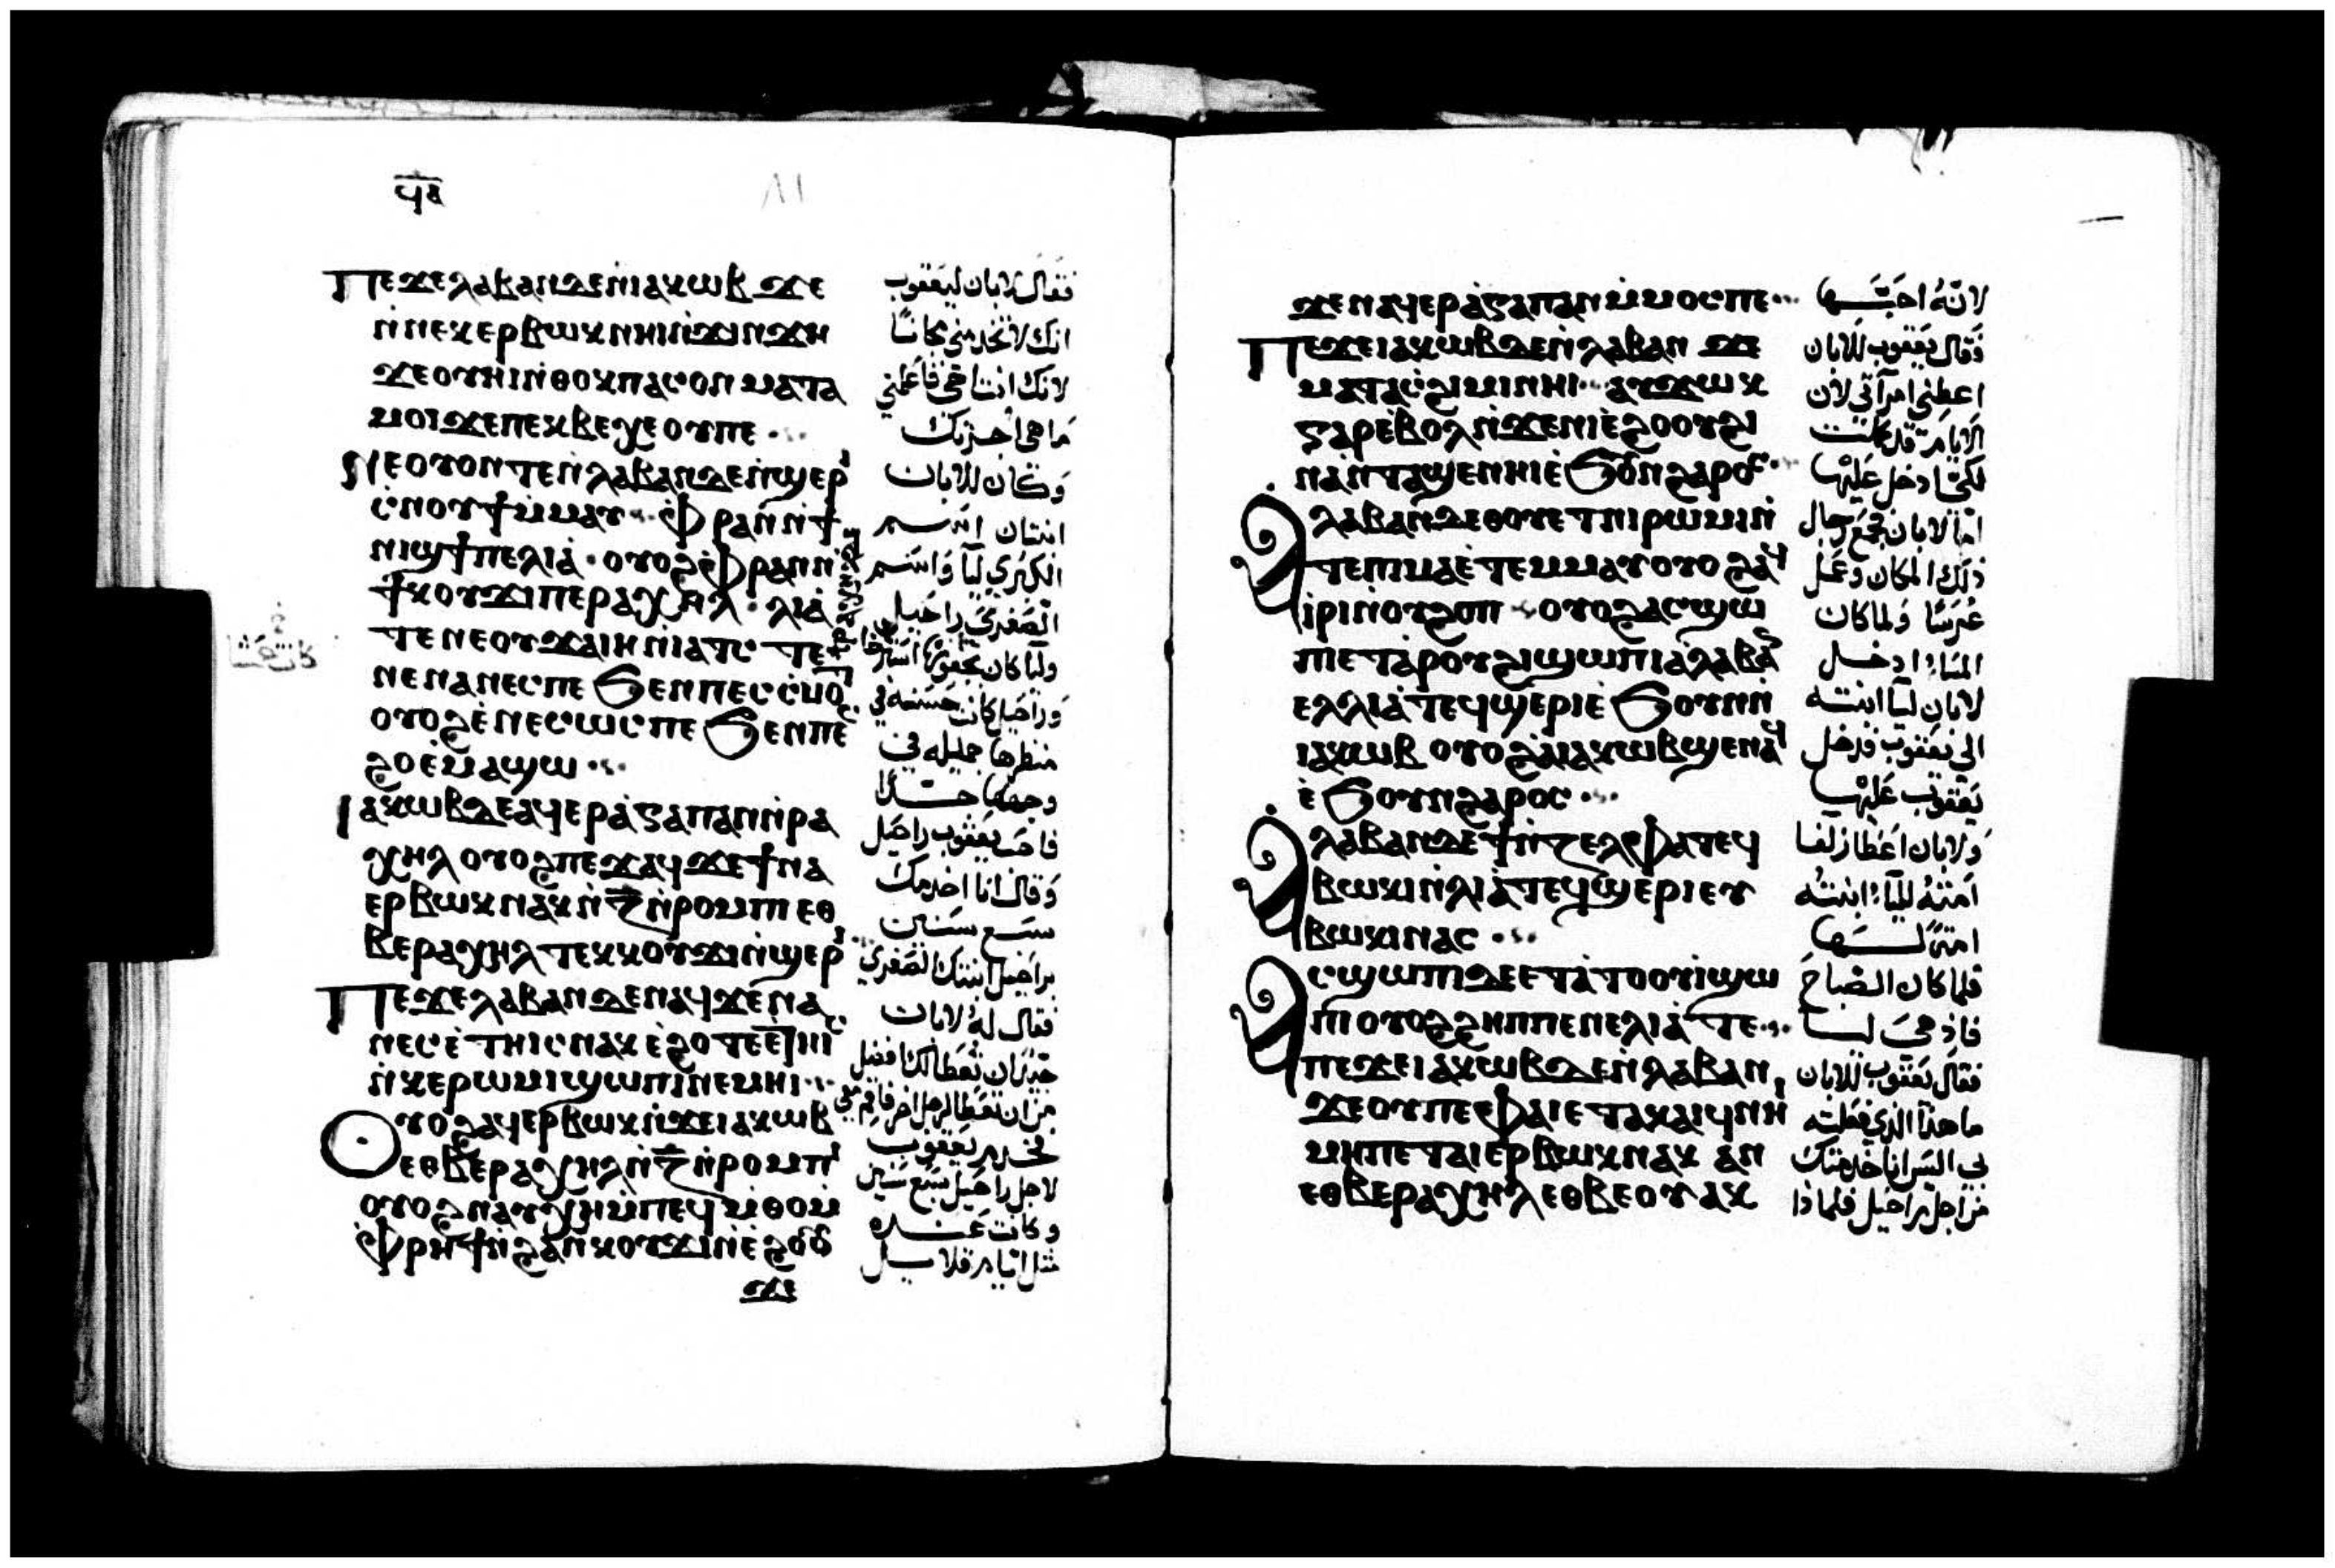 ϥⲃ
Ⲡⲉϫⲉⲗⲁⲃⲁⲛⲇⲉⲛ̀ⲓⲁⲕⲱⲃ ϫⲉ
ⲛ̀ⲛⲉⲕⲉⲣⲃⲱⲕⲛⲏⲓⲛ̀ϫⲓⲛϫⲏ
ϫⲉⲟⲩⲏⲓⲛ̀ⲑⲟⲕⲡⲁⲥⲟⲛ ⲙⲁⲧⲁ
ⲙⲟⲓϫⲉⲡⲉⲕⲃⲉⲭⲉⲟⲩⲡⲉ
Ⲛⲉⲟⲩⲟⲛⲧⲉⲛ̀ⲗⲁⲃⲁⲛⲇⲉⲛ̀ϣⲉⲣⲓ
ⲥ̀ⲛⲟⲩϯⲙ̀ⲙⲁⲩ ⲫ̀ⲣⲁⲛⲛ̀ϯ
ⲛⲓϣϯⲡⲉⲗⲓⲁ̀ ⲟⲩⲟϩⲫ̀ⲣⲁⲛⲛ̀
ϯⲕⲟⲩϫⲓⲡⲉⲣⲁⲭⲏⲗ ⲗⲓⲁ̀
ⲛⲉⲛⲁⲛⲉⲥⲡⲉ ϧⲉⲛⲡⲉⲥⲥ̀ⲙⲟⲧ
ⲟⲩⲟϩⲉ̀ⲛⲉⲥⲱⲥⲡⲉ ϧⲉⲛⲡⲉ
ϩⲟⲉ̀ⲙⲁϣⲱ
Ⲓⲁⲕⲱⲃⲇⲉⲁϥⲉⲣⲁ̀ⲅⲁⲡⲁⲛⲛ̀ⲣⲁ
ⲭⲏⲗ ⲟⲩⲟϩⲡⲉϫⲁϥ ϫⲉϯⲛⲁ
ⲉⲣⲃⲱⲕⲛⲁⲕⲛ̀ⲍ̄ⲛ̀ⲣⲟⲙⲡⲓ ⲉⲑ
ⲃⲉⲣⲁⲭⲏⲗ ⲧⲉⲕⲕⲟⲩϫⲓⲛ̀ϣⲉⲣⲓ
Ⲡⲉϫⲉⲗⲁⲃⲁⲛⲇⲉⲛⲁϥϫⲉⲛⲁ
ⲛⲉⲥⲉ̀ⲧⲏⲓⲥⲛⲁⲕ ⲉ̀ϩⲟⲧⲉⲉ̀ⲧⲏⲓⲥ
ⲛ̀ⲕⲉⲣⲱⲙⲓϣⲱⲡⲓⲛⲉⲙⲏⲓ
Ⲟⲩⲟϩⲁϥⲉⲣⲃⲱⲕⲛ̀ϫⲉⲓⲁⲕⲱⲃ
ⲉⲑⲃⲉⲣⲁⲭⲏⲗⲛ̀ⲍ̄ⲛ̀ⲣⲟⲙⲡⲓ
ⲟⲩⲟϩⲛⲁⲩⲭⲏⲙ̀ⲡⲉϥⲙ̀ⲑⲟⲙ̀
ⲫ̀ⲣⲏϯⲛ̀ϩⲁⲛⲕⲟⲩϫⲓⲛ̀ⲉ̀ϩⲟⲟⲩ
ϫⲉ
فقال لابان ليعقوب
انك لا تخدمني مجانًا
لانك انت اخي فاعلمني
ما هي اجرتك
وكان للابان
ابنتان اسم
الكبرى ليا واسم
الصغرى راحيل
وراحيل كانت حسنه في
منظرها جميله في
وجهها جدًا
فاحب يعقوب راحيل
وقال انا اخدمك
سبع سنين
براحيل ابنتك الصغرى
فقال له لابان
فخدم يعقوب
لاجل راحيل سبع سنين
وكانت عنده
مثل ايام قلايل
ϫⲉⲛⲁϥⲉⲣⲁ̀ⲅⲁⲡⲁⲛⲙ̀ⲙⲟⲥⲡⲉ
Ⲡⲉϫⲉⲓⲁⲕⲱⲃⲇⲉⲛ̀ⲗⲁⲃⲁⲛ ϫⲉ
ⲙⲁⲧⲁⲥϩⲓⲙⲓⲛⲏⲓ ⲁⲩϫⲱⲕ
ⲅⲁⲣⲉ̀ⲃⲟⲗⲛ̀ϫⲉⲛⲓⲉ̀ϩⲟⲟⲩϩⲓ
ⲛⲁⲛ̀ⲧⲁϣⲉⲛⲏⲓⲉ̀ϧⲟⲩⲛϩⲁⲣⲟⲥ
Ⲁⲗⲁⲃⲁⲛⲇⲉⲑⲟⲩⲉⲧⲛⲓⲣⲱⲙⲓⲛ̀
ⲧⲉⲡⲓⲙⲁⲉ̀ⲧⲉⲙ̀ⲙⲁⲩⲟⲩⲟϩⲁϥ
ⲓⲣⲓⲛ̀ⲟⲩϩⲟⲡ ⲟⲩⲟϩⲁⲥϣⲱ
ⲡⲓⲉⲧⲁⲣⲟⲩϩⲓϣⲱⲡⲓⲁ̀ⲗⲁⲃⲁⲛ
ⲉⲗⲗⲓⲁ̀ⲧⲉϥϣⲉⲣⲓⲉ̀ϧⲟⲩⲛⲛ̀
ⲓⲁⲕⲱⲃ ⲟⲩⲟϩⲁ̀ⲓⲁⲕⲱⲃϣⲉⲛⲁϥ
ⲉ̀ϧⲟⲩⲛϩⲁⲣⲟⲥ
Ⲁⲗⲁⲃⲁⲛⲇⲉϯⲛ̀ⲍⲉⲗⲫⲁⲧⲉϥ
ⲃⲱⲕⲓⲛ̀ⲗⲓⲁ̀ⲧⲉϥϣⲉⲣⲓⲉⲩ
ⲃⲱⲕⲓⲛⲁⲥ
Ⲁⲥϣⲱⲡⲓⲇⲉⲉⲧⲁ̀ⲧⲟⲟⲩⲓ̀ϣⲱ
ⲡⲓⲟⲩⲟϩϩⲏⲡⲡⲉⲛⲉⲗⲓⲁ̀ⲧⲉ
Ⲁⲡⲉϫⲉⲓⲁⲕⲱⲃⲇⲉⲛ̀ⲗⲁⲃⲁⲛ
ϫⲉⲟⲩⲡⲉⲫⲁⲓⲉⲧⲁⲕⲁⲓϥⲛⲏⲓ
ⲙⲏⲡⲉⲧⲁⲓⲉⲣⲃⲱⲕⲛⲁⲕ ⲁⲛ
ⲉⲑⲃⲉⲣⲁⲭⲏⲗⲉⲑⲃⲉⲟⲩⲁⲕ
لانه احبها
فقال يعقوب للابان
اعطني امرآتي لان
الايام قد كملت
لكيما ادخل عليها
اما لابان فجمع رجال
ذلك المكان وعمل
عرسًا ولما كان
المساء ادخل
لابان ليا ابنته
الى يعقوب فدخل
يعقوب عليها
ولابان اعطا زلفا
امته لليا ابنته
امة لها
فلما كان الصباح
فاذ هي ليا
فقال يعقوب للابان
ما هذا الذي فعلته
بي اليس انا خدمتك
من اجل راحيل فلماذا